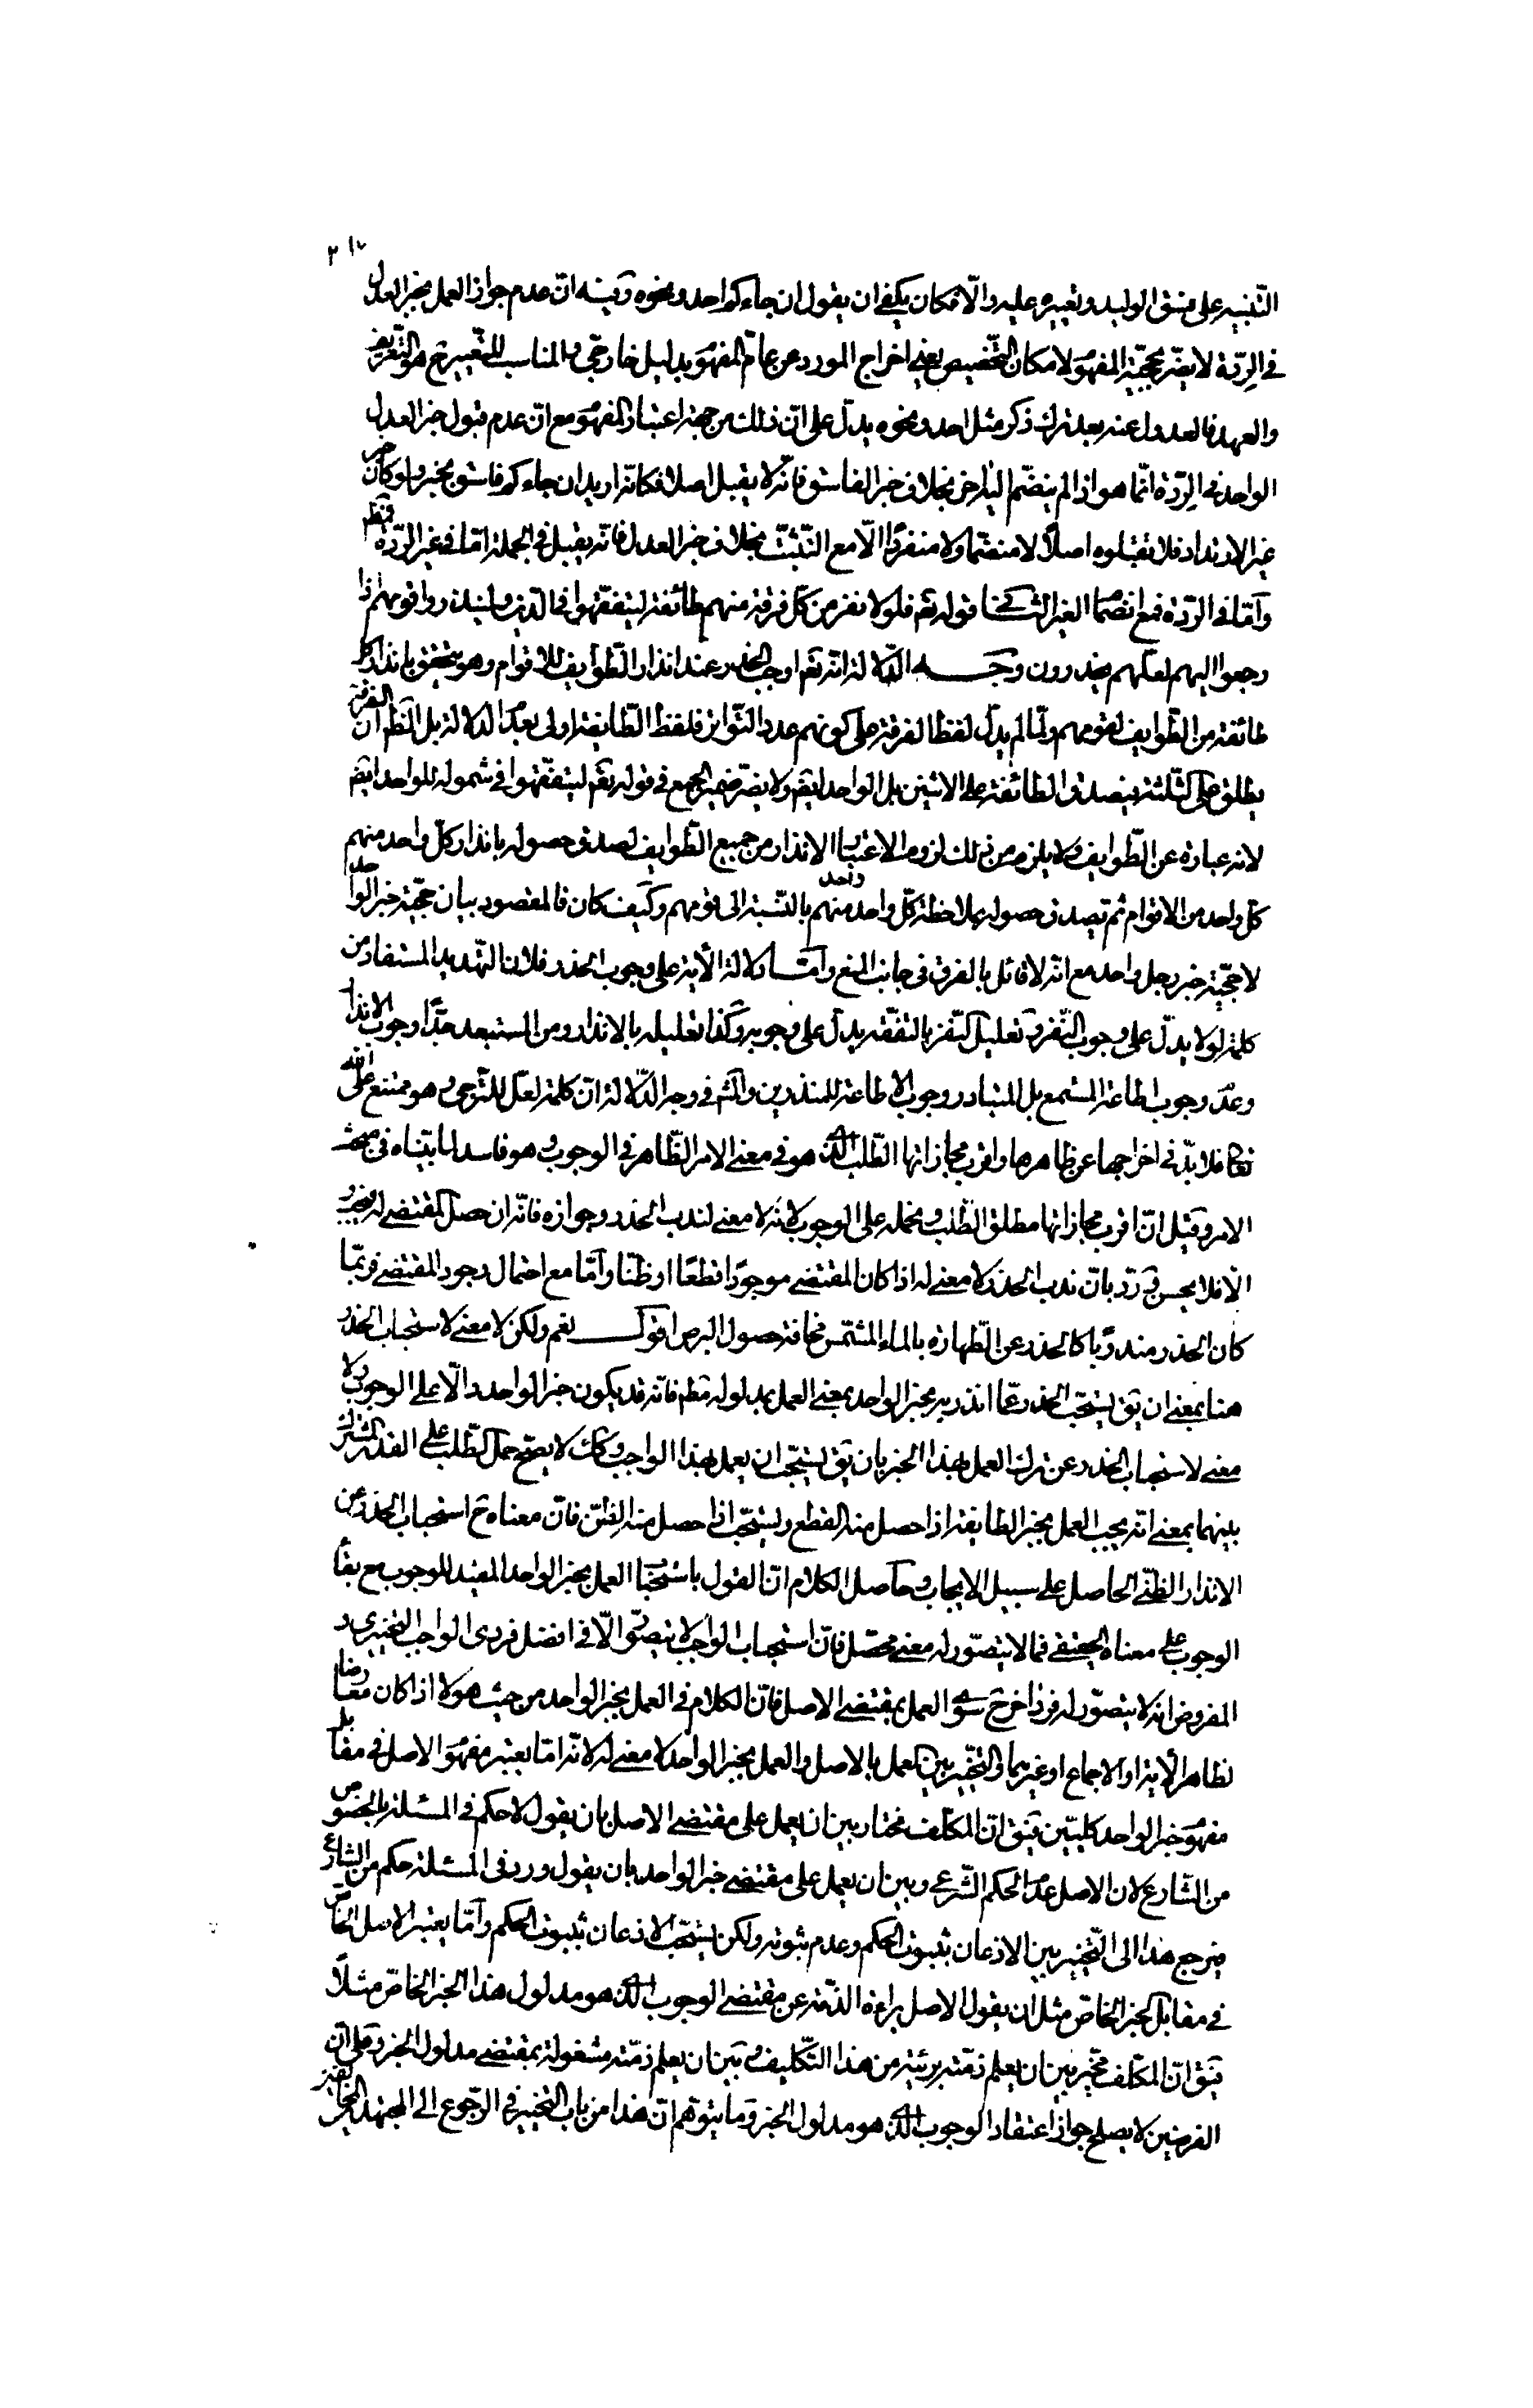 ٢١٧
التّنبيه على فسق الوليد وتعييره عليه والّا فكان يكفي ان يقول ان جاءكم واحد ونحوه وفيه انّ عدم جواز العمل بخبر العدل
في الردّة لا يضرّ بحجيّة المفهوم لامكان التّخصيص يعني اخراج المورد عن عامّ المفهوم بدليل خارجي والمناسب للتّعيير ح هو التّعريض
والعهد فالعدول عنه بعد ترك ذكر مثل احد ونحوه يدلّ على انّ ذلك من جهة اعتبار المفهوم مع انّ عدم قبول خبر العدل
الواحد في الردّة انّما هو اذا لم ينضمّ اليه اخر بخلاف خبر الفاسق فانّه لا يقبل اصلا فكانّه اريد ان جاءكم فاسق بخبر ولو كان خبر
غير الارتداد فلا تقبلوه اصلًا لا منضمّا ولا منفردًا الّا مع التّثبّت بخلاف خبر العدل فانّه يقبل في الجملة امّا في غير الردّة فمطم
وامّا في الردّة فمع انضمام الغير الثّالث قوله تعم فلولا نفر من كلّ فرقة منهم طائفة ليتفقّهوا في الدّين ولينذروا قومهم اذا
رجعوا اليهم لعلّهم يحذرون وجه الدّلالة انّه تعم اوجب الحذر عند انذار الطّوايف للاقوام وهو يتحقق بانذار كلّ
طائفة من الطّوايف لقومهم ولمّا لم يدلّ لفظ الفرقة على كونهم عدد التّواتر فلفظ الطّايفة اولى بعدم الدّلالة بل الظّم انّ الفرقة
يطلق على الثّلثة فيصدق الطائفة على الاثنين بل الواحد ايضم ولا يضرّ ضمير الجمع في قوله تعم ليتفقّهوا في شموله للواحد ايضم
لانه عبارة عن الطّوايف ولا يلزم من ذلك لزوم الاعتبار الانذار من جميع الطّوايف لصدق حصوله بانذار كلّ واحد منهم
كلّ واحد من الاقوام ثم يصدق حصوله بملاحظة كلّ واحد واحد منهم بالنّسبة الى قومهم وكيف كان فالمقصود بيان حجيّة خبر الواحد
لا حجيّة خبر رجل واحد مع انّه لا قائل بالفرق في جانب المنع وامّا دلالة الأية على وجوب الحذر فلان التّهديد المستفاد من
كلمة لولا يدلّ على وجوب النّفر وتعليل النّفر بالتفقّه يدلّ على وجوبه وكذا تعليله بالانذار ومن المستبعد جدًّا وجوب الانذار
وعدم وجوب اطاعة المستمع بل المتبادر وجوب الاطاعة للمنذرين والمشم في وجه الدّلالة انّ كلمة لعلّ للتّرجي وهو ممتنع على الله
تعم فلا بدّ في اخراجها عن ظاهرها واقرب مجازاتها الطّلب الّذي هو في معنى الامر الظّاهر في الوجوب وهو فاسد لما بيّناه في مبحث
الامر وقيل انّ اقرب مجازاتها مطلق الطّلب ونحمله على الوجوب لانّه لا معنى لندب الحذر وجوازه فانّه ان حصل المقتضي له فيجب و
الّا فلا يحسن وردّ بانّ ندب الحذر لا معنى له اذا كان المقتضي موجودًا قطعًا او ظنّا وامّا مع احتمال وجود المقتضي فربّما
كان الحذر مندوبًا كالحذر عن الطّهارة بالماء المشمّس مخافة حصول البرص اقول نعم ولكن لا معنى لاستحباب الحذر
هنا بمعنى ان يق يستحبّ الحذر عمّا انذر به بخبر الواحد بمعنى العمل بمدلوله مطم فانّه قد يكون خبر الواحد دالّا على الوجوب ولا
معنى لاستحباب الحذر عن ترك العمل بهذا الخبر بان يق يستحبّ ان يعمل بهذا الواجب وكذلك لا يصحّ حمل الطّلب على القدر المشترك
بينهما بمعنى انّه يجب العمل بخبر الطايفة اذا حصل منه القطع ويستحبّ اذا حصل منه الظّنّ فانّ معناه ح استحباب الحذر عن
الانذار الظنّي الحاصل على سبيل الايجاب وحاصل الكلام انّ القول باستحباب العمل بخبر الواحد المفيد للوجوب مع بقاء
الوجوب على معناه الحقيقي فما لا يتصوّر له معنى محصّل فانّ استحباب الواجب لا يتصوّر الّا في افضل فردي الواجب التّخييري و
المفروض انه لا يتصوّر له فرد اخر ح سوى العمل بمقتضي الاصل فانّ الكلام في العمل بخبر الواحد من حيث هو لا اذا كان معارضا
لظاهر الأية او الاجماع او غيرهما والتّخيير بين العمل بالاصل والعمل بخبر الواحد لا معنى له لانّه امّا يعتبر مفهوم الاصل في مقابل
مفهوم خبر الواحد كليّين فيق انّ المكلّف مختار بين ان يعمل على مقتضي الاصل بان يقول لا حكم في المسئلة بالخصوص
من الشّارع لان الاصل عدم الحكم الشّرعي وبين ان يعمل على مقتضي خبر الواحد بان يقول ورد في المسئلة حكم من الشّارع
فيرجع هذا الى التّخيير بين الاذعان بثبوت الحكم وعدم ثبوته ولكن يستحبّ الاذعان بثبوت الحكم وامّا يعتبر الاصل الخاصّ
في مقابل الخبر الخاصّ مثل ان يقول الاصل براءة الذمّة عن مقتضي الوجوب الّذي هو مدلول هذا الخبر الخاصّ مثلًا
فيق انّ المكلّف مخيّر بين ان يعلم ذمّته بريئة من هذا التّكليف وبين ان يعلم ذمّته مشغولة بمقتضي مدلول الخبر وعلى انّ
الفرضين لا يصلح جواز اعتقاد الوجوب الّذي هو مدلول الخبر وما يتوهّم انّ هذا من باب التخيير في الرّجوع الى المجتهد